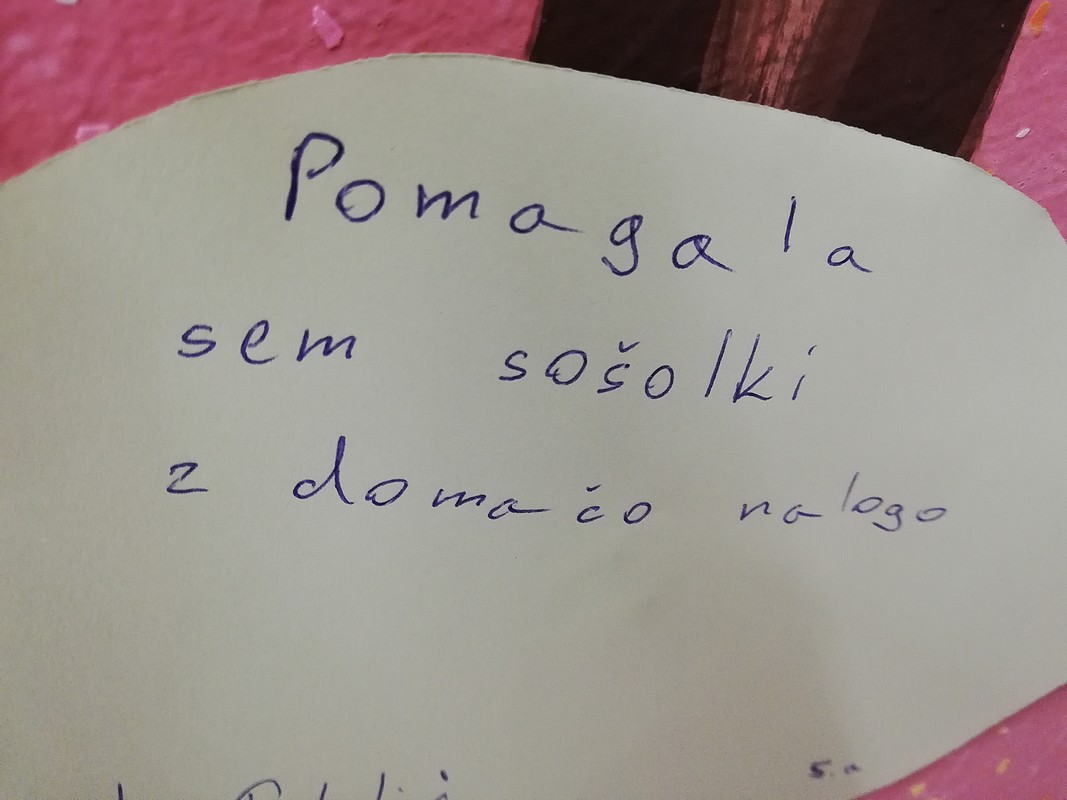 Pomagala
sem sošolki
z domačo nalogo
5.a